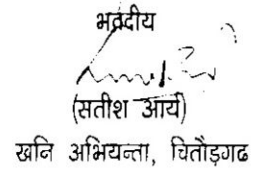 भवदीय
(सतीश आर्य)
खनि अभियन्ता, चितौड़गढ